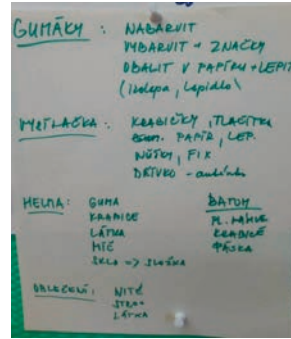 GUMÁKY : NABARVIT
VYBARVIT + ZNAČKY
OBALIT V PAPÍRU + LEPIT
(izolepa, lepidlo)
VYSÍLAČKA : KRABIČKY, TLAČÍTKA
PAPÍR, LEP.
NŮŽKY, FIX
DŘÍVKO -
HELMA : GUMA
KRABICE
LÁTKA
MÍČ
SKLO => SLOŽKA
BATOH
PL. LAHVE
KRABICE
PÁSKA
OBLEČENÍ : NITĚ
LÁTKA